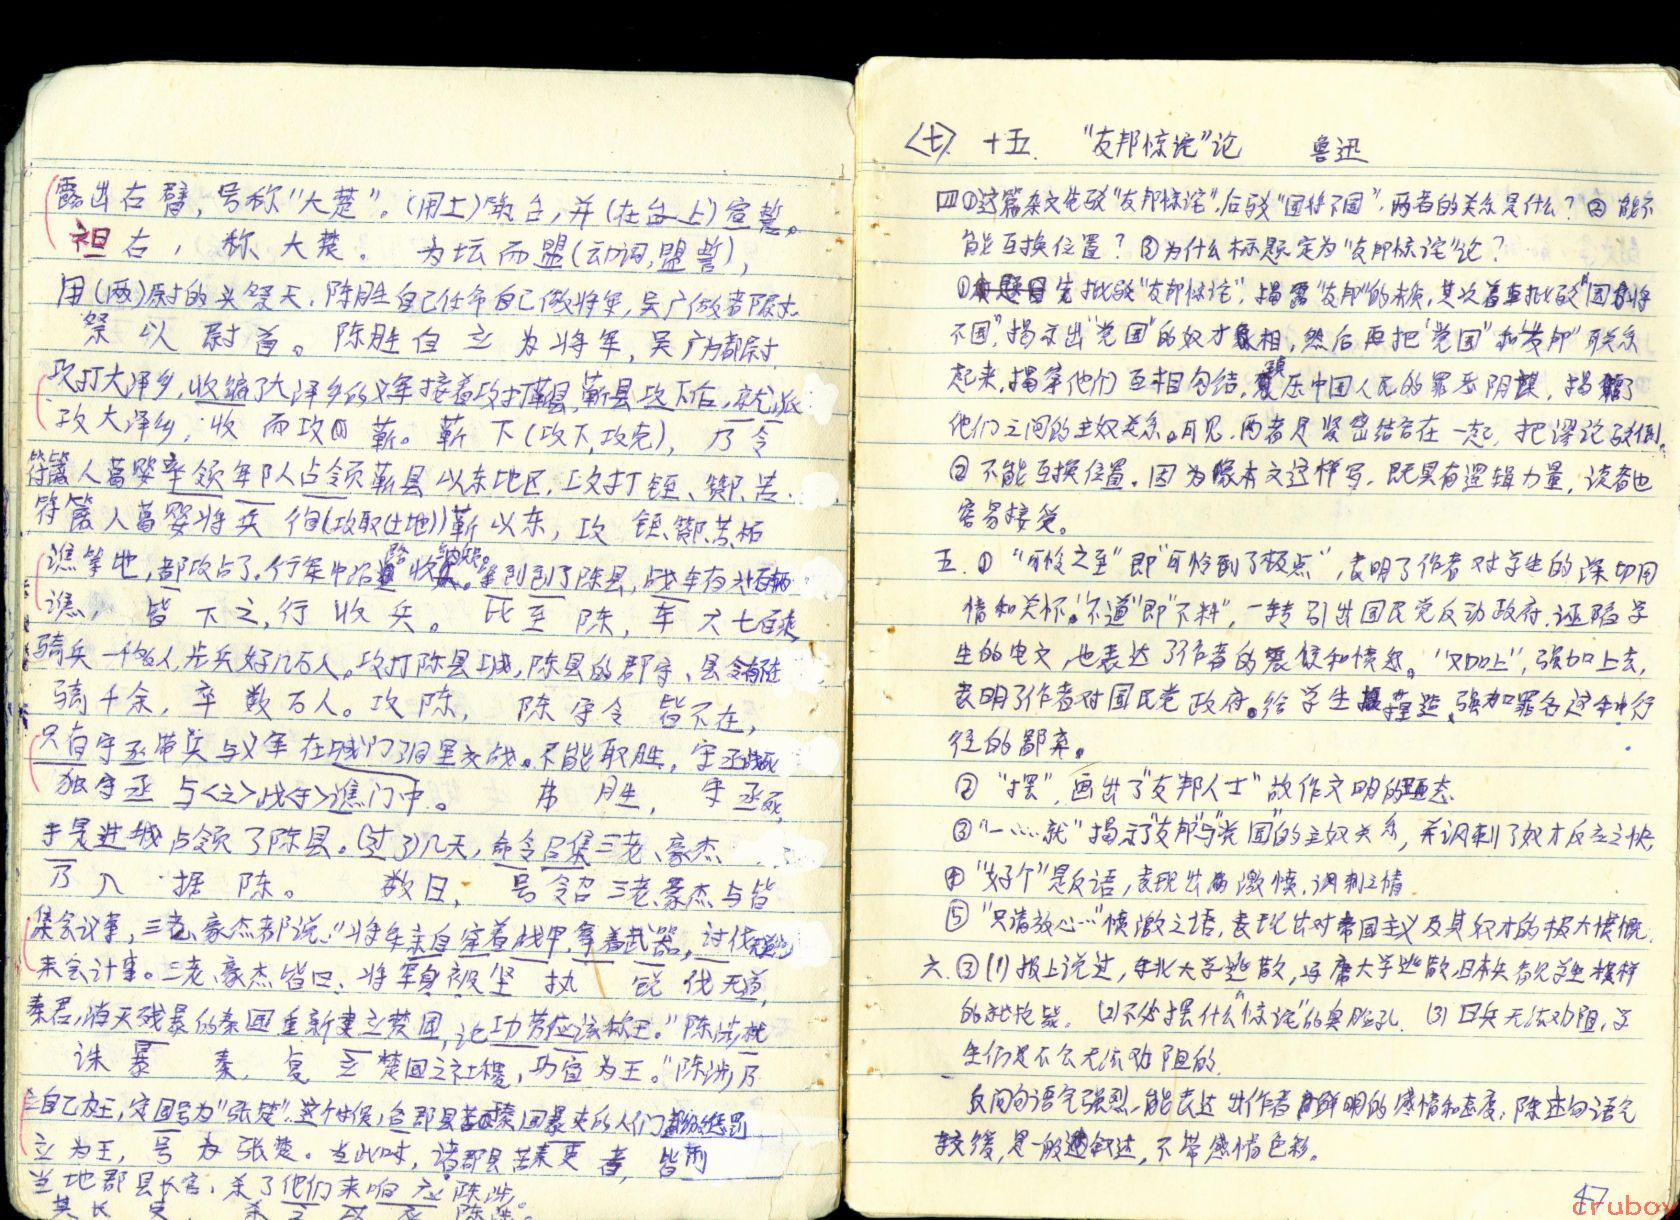 露出右臂，号称“大楚”。（用土）筑台，并（在台上）宣誓。
袒右，称大楚。为坛而盟（动词，盟誓），
用（两）尉的头祭天，陈胜自己任命自己做将军，吴广做都尉
祭以尉首。陈胜自立为将军，吴广为都尉，
攻打大泽乡，收编了大泽乡的义军接着攻打蕲县，蕲县攻下后，就派
攻大泽乡，收而攻蕲。蕲下（攻下，攻克），乃令
符离人葛婴率领军队人占领蕲县以东地区，攻打铚、酂、苦、
符离人葛婴将兵徇（攻取（土地））蕲以东，攻铚、酂、苦、柘
谯等地，都攻占了。行军中沿路收
谯，皆下之，行收兵。比至陈，车六七百乘，
骑兵一千多人，步兵好几万人。攻打陈县城，陈县的郡守、县令都不在
骑千余，卒数万人。攻陈，陈守令皆不在，
只有守丞带兵与义军在城门洞里交战。不能取胜，守丞战死
独守丞与<之>战<于>谯门中。弗胜，守丞死，
于是进城占领了陈县。（过了）几天，命令召集三老、豪杰
乃入据陈。数日，号令召三老、豪杰与皆
集会议事，三老、豪杰都说：“将军亲自穿着战甲，拿着武器，讨伐
来会计事。三老、豪杰皆曰：将军身被坚执锐伐无道，
秦君，消灭残暴的秦国重新建立楚国，论功劳应该称王。”陈涉就
诛暴秦，复立楚国之社稷，功宜为王。”陈涉乃
自己立王，定国号为“张楚”。这个时候，各郡县苦秦国暴吏的人们都
立为王，号为张楚。当此时，诸郡县苦秦吏者，皆刑
当地郡县长官，杀了他们来响应陈涉。
其长吏，杀之以应陈涉。
<七> 十五. “友邦惊诧”论 鲁迅
四①这篇杂文先驳“友邦惊诧”，后驳“国将不国”，两者的关系是什么？②能不
能互换位置？③为什么标题定为“友邦惊诧”论？
①题目先批驳“友邦惊诧”，揭露“友邦”的本质，其次着重批驳“国将
不国”，揭示出“党国”的奴才相，然后再把“党国”和“友邦”联系
起来，揭穿他们互相勾结，镇压中国人民的罪恶阴谋，揭露了
他们之间的主奴关系。可见，两者是紧密结合在一起，把谬论驳倒。
②不能互换位置。因为像本文这样写，既具有逻辑力量，读者也
容易接受。
五.①“可怜之至”即“可怜到了极点”，表明了作者对学生的深切同
情和关怀。“不道”即“不料”，一转引出国民党反动政府，诬陷学
生的电文，也表达了作者的震惊和愤怒。“又加上”，强加上去，
表明了作者对国民党政府。给学生捏造、强加罪名这种行
径的鄙弃。
②“摆”，画出了“友邦人士”故作文明的丑态
③“一……就”揭示了“友邦”与“党国”的主奴关系，并讽刺了奴才反应之快，
④“好个”是反语，表现出激愤，讽刺之情
⑤“只请放心…”愤激之语，表现出对帝国主义及其奴才的极大愤慨.
六.③(1)报上说过，东北大学逃散，冯庸大学逃散，日本兵看见学生模样
的就枪毙。(2)不必摆什么“惊诧”的臭脸孔. (3)日兵无法劝阻，学
生们是不会无法劝阻的.
反问句语气强烈，能表达出作者鲜明的感情和态度；陈述句语气
较缓，是一般述叙述，不带感情色彩。
47
cruboy